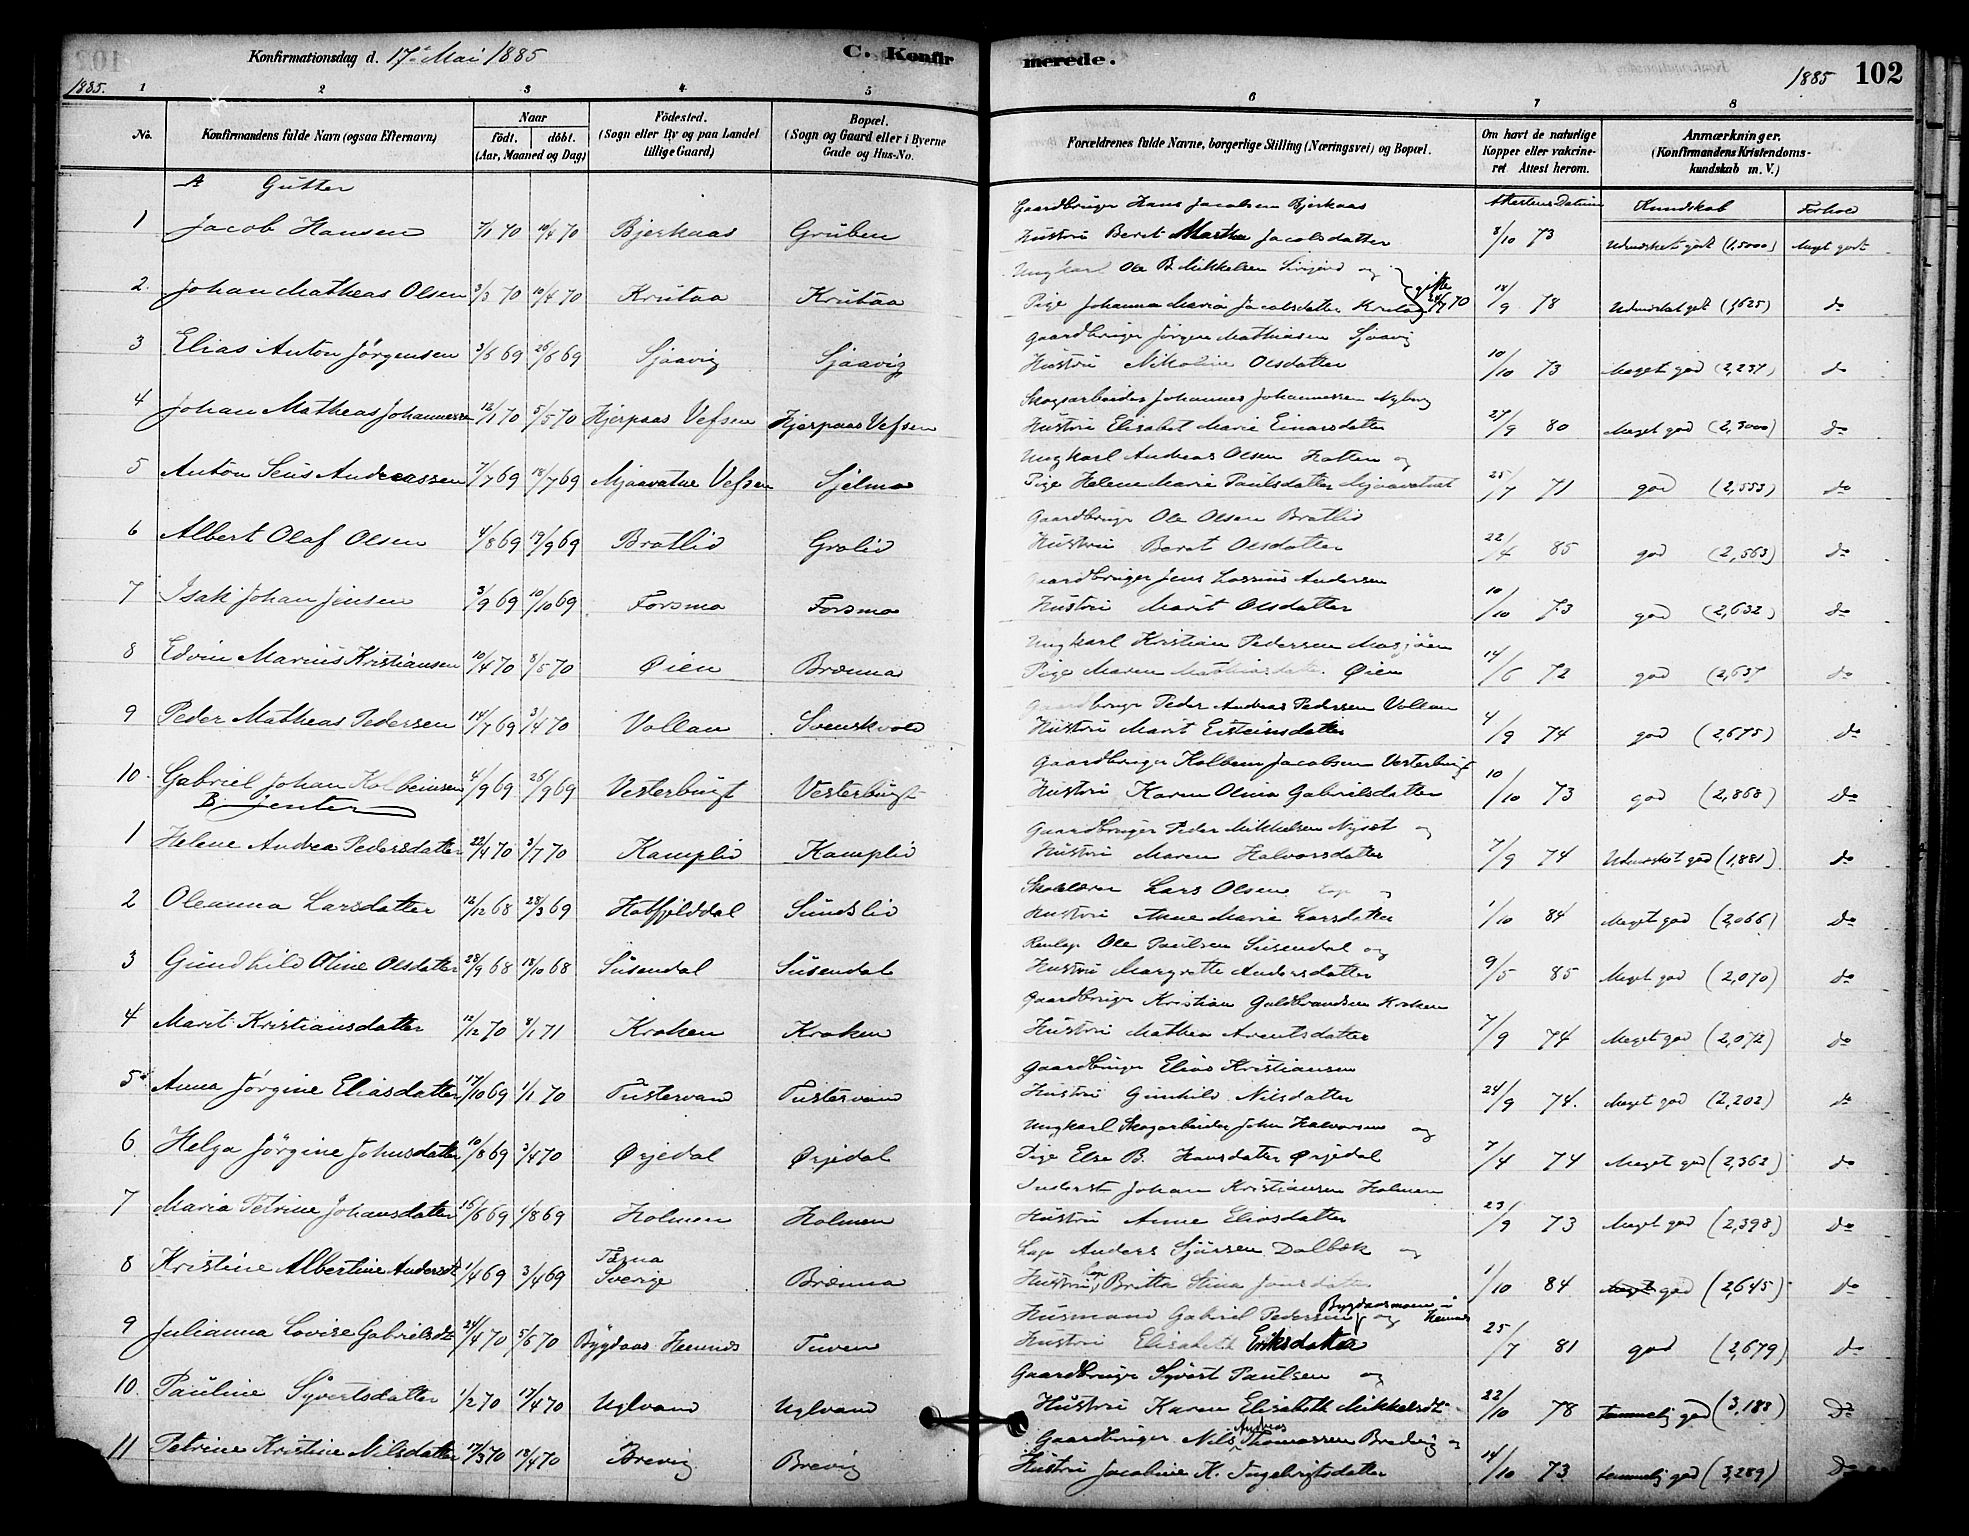 Konfirmationsdag d. 17de Mai 1885 C. Konfirmerede. 1885 102
1885. 1 2 3 4 5 6 7 8
No. Konfirmandens fulde Navn (ogsaa Efternavn) Naar födt. döbt. (Aar, Maaned og Dag) Födested. (Sogn eller By og paa Landet tillige Gaard) Bopæl. (Sogn og Gaard eller i Byerne Gade og Hus-No. Forældrenes fulde Navne, borgerlige Stilling (Næringsvei) og Bopæl. Om havt de naturlige Kopper eller vakcineret Attest herom. Anmærkninger. (Konfirmandens Kristendomskundskab m. V.)
A Gutter Attestens Datum Kundskab Forhold
Gaardbruger Hans Jacobsen Bjerkaas
1 Jacob Hansen 7/1 70 10/4 70 Bjerkaas Gruben Hustru Beret Martha Jacobsdatter 8/10 73 Udmerket godt (1,5000) Meget godt
Ungkarl Ole B. Mikkelsen og gifte
2. Johan Matheas Olsen 3/3 70 10/4 70 Krutaa Krutaa Pige Johanna Maria Jacobsdatter Krutaa 24/7 70 18/9 78 Udmerket godt (1,625) do
Gaardbruger Jörgen Mathiasen Sjaavig
3 Elias Anton Jörgensen 3/6 69 26/6 69 Sjaavig Sjaavig Hustru Nikoline Olsdatter 10/10 73 Meget god (2,237) do
Skogsarbeider Johannes Johannessen Nyberg
4 Johan Matheas Johannessen 12/1 70 5/5 70 Hjerpaas Vefsen Hjerpaas Vefsen Hustru Elisabet Marie Einarsdatter 27/9 80 Meget god (2,3000) do
Ungkarl Andreas Olsen Hatten og
5 Anton Seus Andreassen 7/7 69 18/7 69 Mjaavatne Vefsen Sjelmo Pige Helene Marie Paulsdatter Mjaavatnet 25/7 71 god (2,553) do
Gaardbruge Ole Olsen Bratlid
6 Albert Olaf Olsen 4/8 69 19/9 69 Bratlid Grolid Hustru Beret Olsdatter 22/4 85 god (2,563) do
Gaardbruger Jens Andersen
7 Isak Johan Jensen 3/9 69 10/10 69 Forsmo Forsmo Hustru Marit Olsdatter 10/10 73 god (2,632) do
Ungkarl Kristian Pedersen Mosjöen
8 Edvin Marius Kristiansen 10/4 70 8/5 70 Øien Brænna Pige Maren Mathiasdatt. Øien 14/6 72 god (2,637 do
Gaardbruge Peder Andreas Pedersen Vollan
9 Peder Matheas Pedersen 14/7 69 3/4 70 Vollan Svenskvold Hustru Marit Eisteinsdatter 4/9 74 god (2,675) do
Gaardbruger Kolbein Jacobsen Vesterbugt
10. Gabriel Johan Kolbeinsen 4/9 69 26/9 69 Vesterbugt Vesterbugt Hustru Karen Olina Gabrielsdatter 10/10 73 god (2,868) Do
B. Jenter
Gaardbruger Peder Mikkelsen og
1 Helene Andrea Pedersdatter 22/4 70 3/7 70 Kamplid Kamplid Hustru Maren Halvorsdatter 7/9 74 Udmerket god (1,881) do
Skolelærer Lars Olsen Lap og
2 Oleanna Larsdatter 12/12 68 28/3 69 Hatfjelddal Sundslid Hustru Anne Marie Larsdatter 1/10 84 Meget god (2,066) Do
Renlap Ole Paulsen Susendal og
3 Gundhild Oline Olsdatter 28/9 68 18/10 68 Susendal Susendal Hustru Margrethe Andersdatter 9/5 85 Meget god (2,070) do
Gaardbruger Kristian Guldbrandsen Kroken
4 Marit Kristiansdatter 12/12 70 8/1 71 Kroken Kroken Hustru Mathea Arentsdatter 7/9 74 Meget god (2,072) do
Gaardbruger Elias Kristiansen
5 Anna Jörgine Eliasdatter 17/10 69 1/1 70 Tustervand Tustervand Hustru Gunhild Nilsdatter 24/9 74. Meget god (2,202) do
Ungkarl Skogarbeider John Halvorsen og
6 Helga Jörgine Johnsdatter 10/8 69 3/4 70 Ørjedal Ørjedal Pige Else B. Hansdatter Ørjedal 7/4 74 Meget god (2,362) do
Inderst Johan Kristiansen Holmen
7 Maria Petrine Johansdatter 16/6 69 1/8 69 Holmen Holmen Hustru Anne Eliasdatter 23/9 73 Meget god (2,398) Do
Tærna Lap Anders Sjursen Dalbæk og
8 Kristine Albertine Andersdt 1/4 69 3/4 69 Sverige Brænna Hustru Lap Britta Stina Jonsdatter 1/10 84 Meget god (2,645) do
Husmand Gabriel Pedersen Bygdaasmoen i og Hemnes
9 Julianna Lovise Gabrielsdt 24/4 70 5/6 70 Bygdaas Hemnes Tuven Hustru Elisabeth Eriksdatter 25/7 81 god (2,679) do
Gaardbruge Syvert Paulsen og
10. Pauline Syvertsdatter 1/2 70 17/4 70 Uglvand Uglvand Hustru Karen Elisabeth Mikkelsdt. 22/10 78 Temmelig god (3,188) Do
Gaardbruger Nils Andreas Thomassen Bredvig og
11 Petrine Kristine Nilsdatter 17/3 70 18/4 70 Brevig Brevig Hustru Jacobine K. Ingebrigtsdatter 14/10 73 temmelig god (3,289) Do